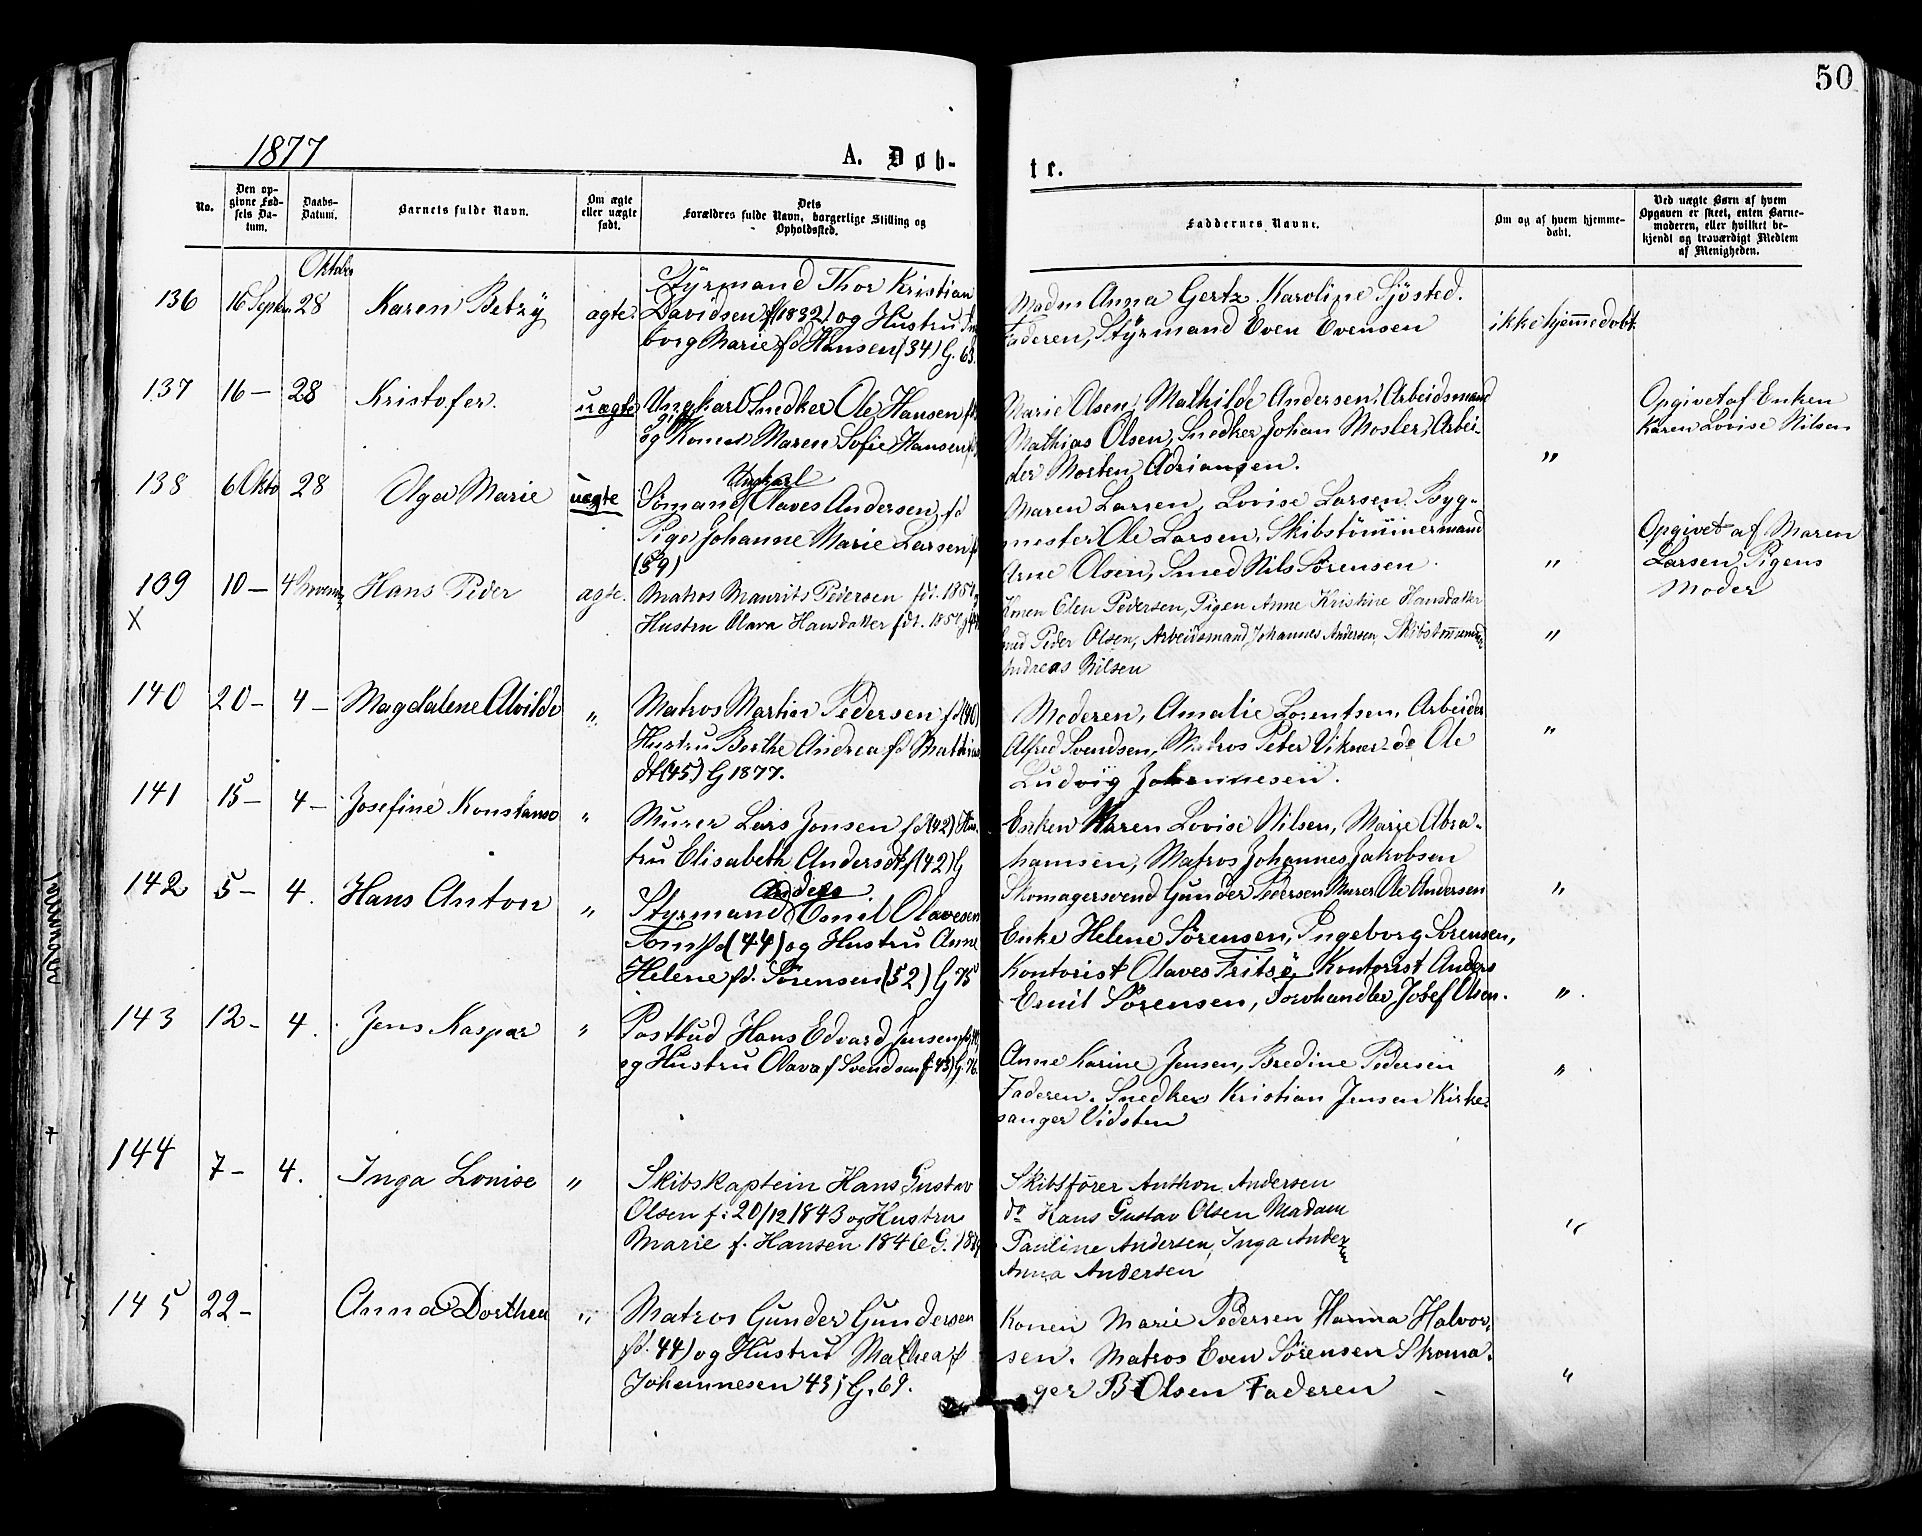 50
1877
A. Døb-
te.
No.
Den op-
givne Fød-
sels Da-
tum.
Daabs-
Datum.
Barnets fulde Navn.
Om ægte
eller uægte
født.
Dets
Forældres fulde Navn, borgerlige Stilling og
Opholdssted.
Faddernes Navne.
Om og af hvem hjemme-
døbt.
Ved uægte Børn af hvem
Opgaven er skeet, enten Barne-
moderen, eller hvilket be-
kjendt og troværdigt Medlem
af Menigheden.
Oktober
136 16 Septbr 28 Karen Betzy ægte
Styrmand Thor Kristian
Davidsen f (1832) og Hustru In
borg Marie fd Hansen (34) G. 63.
Madm Anna Gertz Karoline Sjøsted.
Faderen, Styrmand Even Evensen
ikke hjemmedøbt
137 16 – 28 Kristofer. uægte
Ungkarl Snedker Ole Hansen
og Maren Sofie Hansen
Marie Olsen, Mathilde Andersen, Arbeidsmand
Mathias Olsen, Snedker Johan Mosler, Arbei-
der Morten Adriansen.
"
Opgivet af Enken
Karen Lovise Nilsen
138 6 Okto 28 Olga Marie uægte
Ungkarl
Sømand Olaves Andersen fd
Pige Johanne Marie Larsen f
(59)
Maren Larsen, Lovise Larsen. Byg-
mester Ole Larsen, Skibstømmermand
Arne Olsen, Smed Nils Sørensen
"
Opgivet af Maren
Larsen, Pigens
Moder
139 10 – 4 Novem Hans Peder ægte.
X
Matros Maurits Pedersen fdt. 1851
Hustru Olava Hansdatter fdt. 1851
Konen Elen Pedersen, Pigen Anne Kristine Hansdatter
Smed Peder Olsen, Arbeidsmand Johannes Andersen, Skibstømmermand
Andreas Nilsen
"
140 20 – 4 – Magdalene Alvilde "
Matros Martin Pedersen fd (40)
Hustru Berthe Andrea fd Mathias
dt (45) G 1877.
Moderen, Amalie Lorentsen, Arbeider
Alfred Svendsen, Matros Peter Vikner do Ole
Ludvig Johannesen.
"
141 15 – 4 – Josefine Konstanse "
Murer Lars Jonsen fd (42) Hus-
tru Elisabeth Andersdt f (42) G
Enken Karen Lovise Nilsen, Marie Abra-
hamsen, Matros Johannes Jakobsen
Skomagersvend Gunder Pedersen Murer Ole Andersen
"
142 5 – 4. Hans Anton "
Anders
Styrmand Emil Olavesen
Tom fd (44) og Hustru Anne
Helene fd. Sørensen (52) G 75
Enke Helene Sørensen, Ingeborg Sørensen,
Kontorist Olaves Fritsø, Kontorist Anders
Emil Sørensen, Jernhandler Josef Olsen.
"
143 12 – 4. Jens Kaspar "
Postbud Hans Edvard Jensen
og Hustru Olava f Svendsen f 43) G. 76.
Anne Karine Jensen, Bredine Pedersen
Faderen. Snedker Kristian Jensen Kirke-
sanger Vidsten
"
144 7 – 4. Inga Lovise "
Skibskaptein Hans Gustav
Olsen f: 20/12 1843 og Hustru
Marie f. Hansen 1846 G.
Skibsfører Anthon Andersen
do Hans Gustav Olsen Madam
Pauline Andersen, Inga Andersen
Anna Andersen
"
145 22 – Anna Dorthea "
Matros Gunder Gundersen
fd. 44) og Hustru Mathea f
Johannesen 43) G. 69.
Konen Marie Pedersen Hanna Halvor-
sen. Matros Even Sørensen Skoma-
ger B Olsen Faderen
"